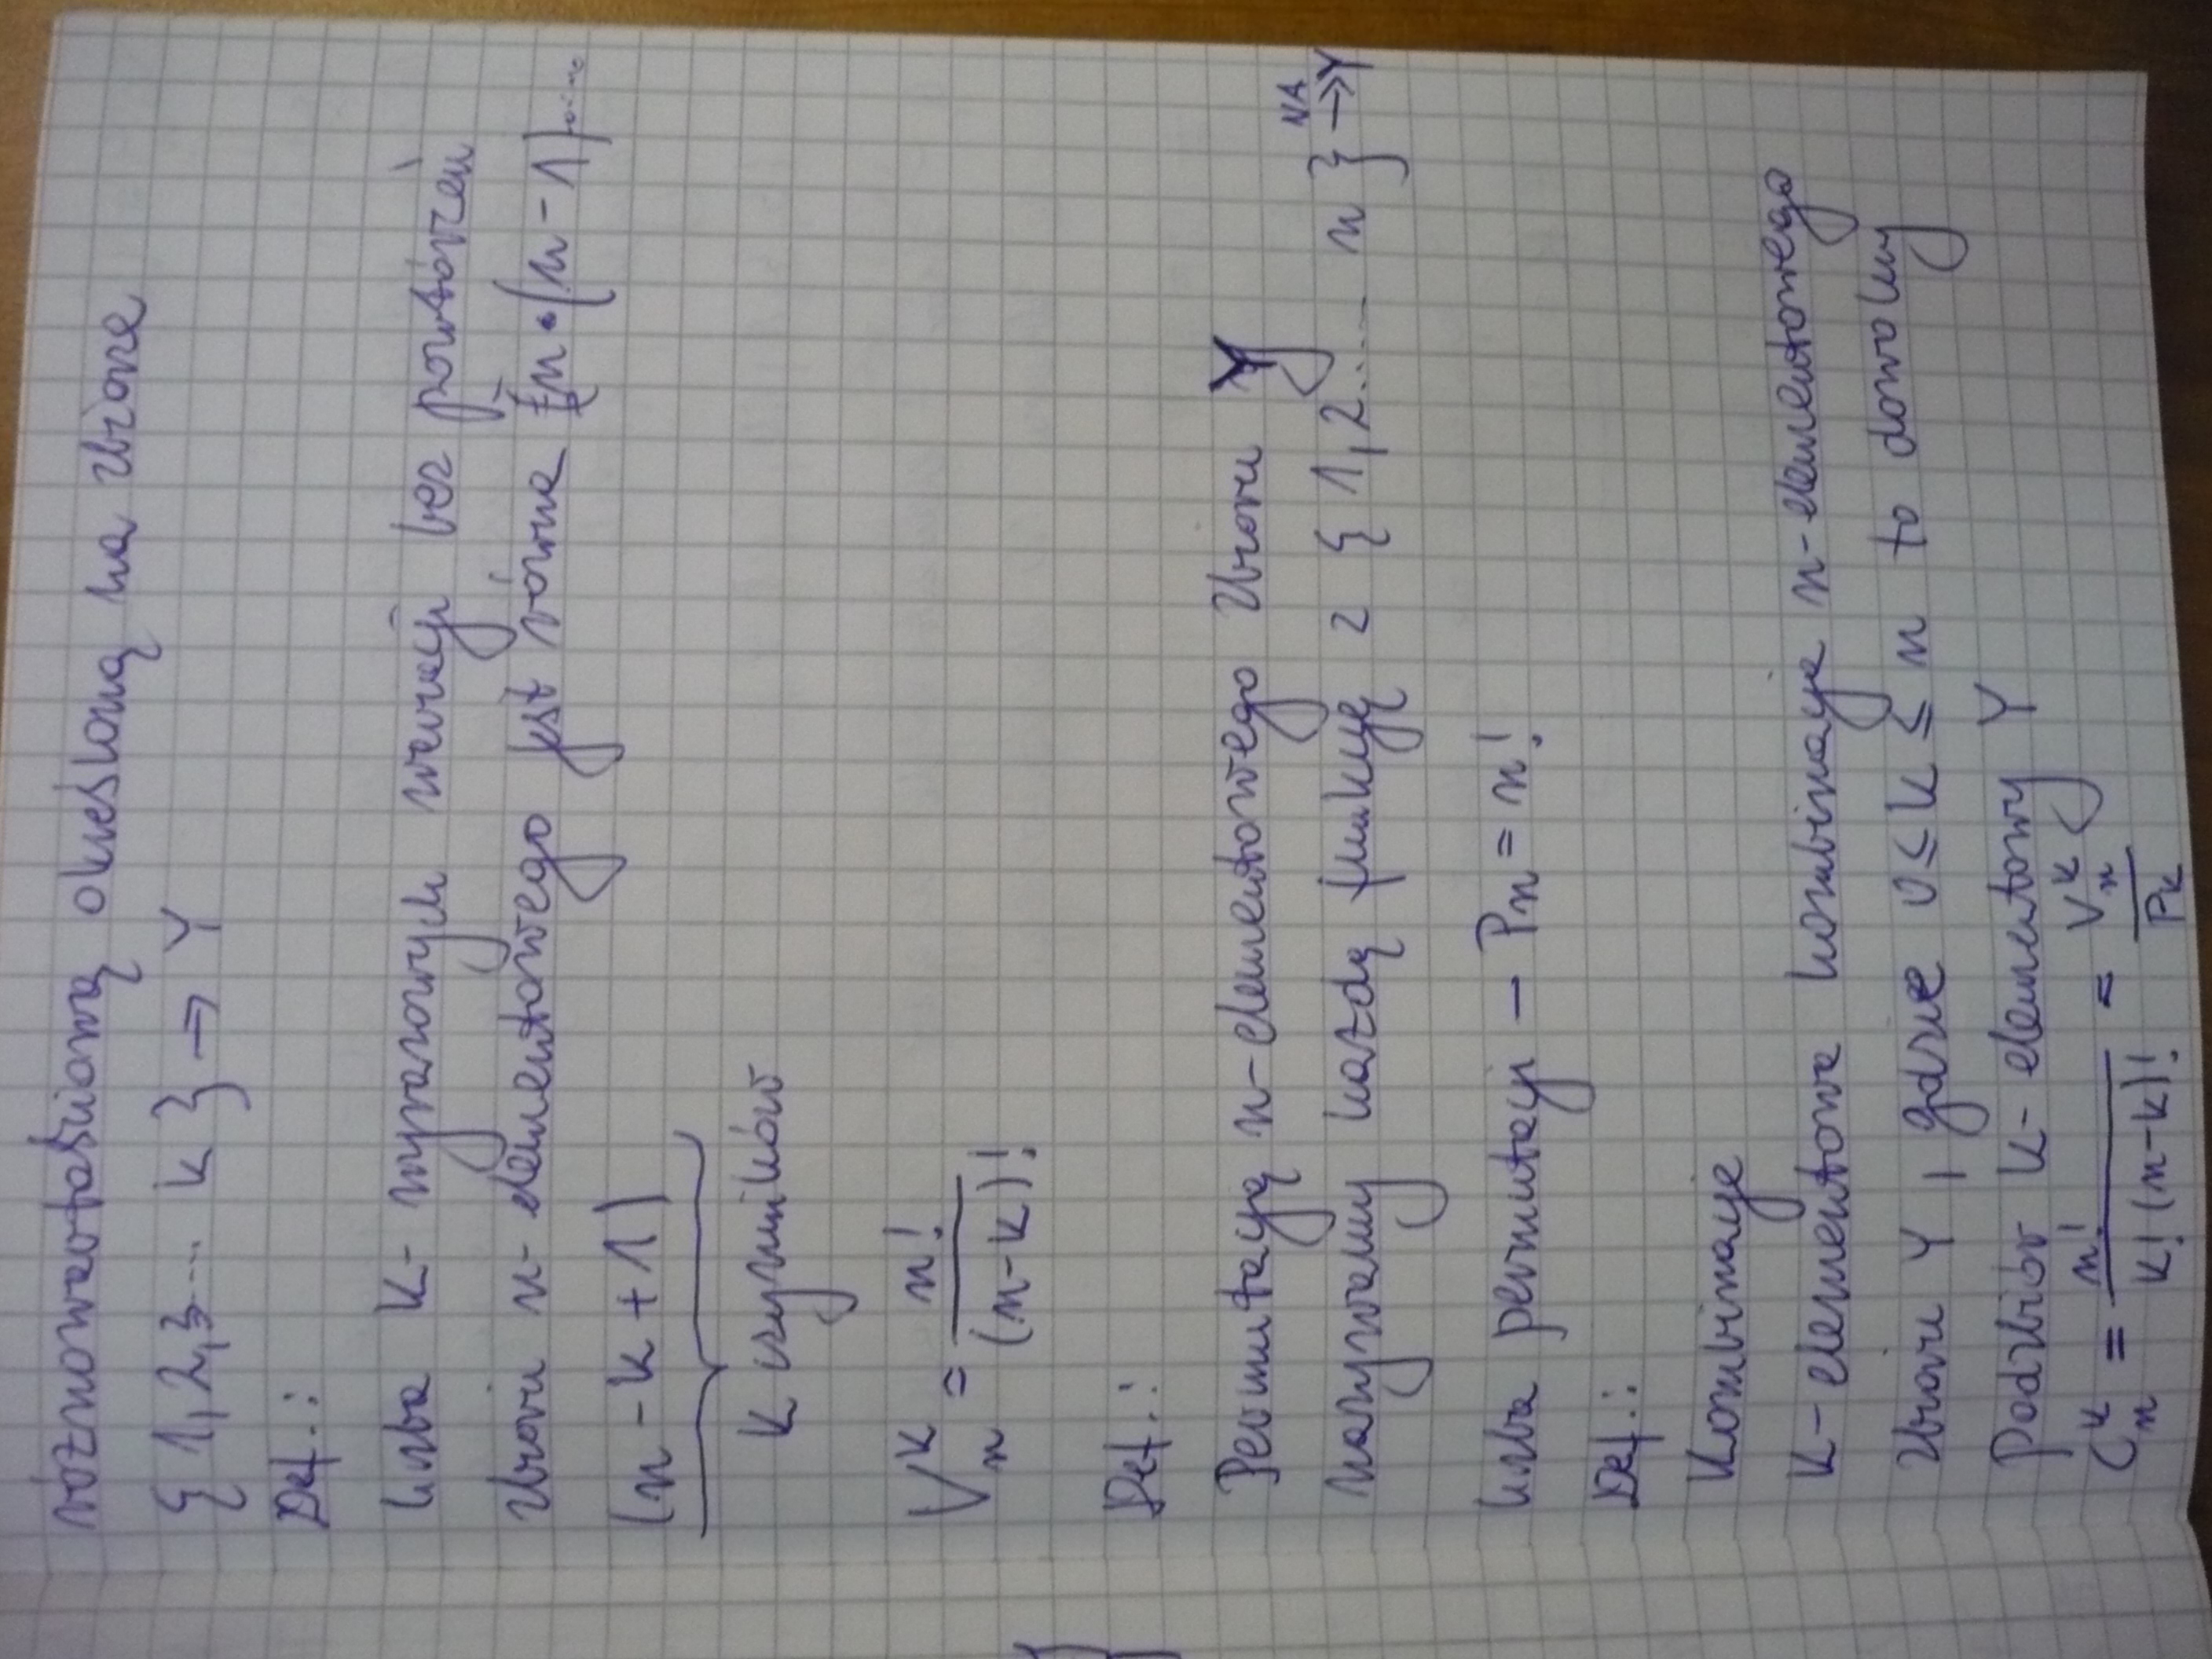 różnowartościową określoną na zbiorze
{ 1, 2, 3... k } → Y
Def.:
liczba k- wyrazowych wariacji bez powtórzeń
zbioru n- elementowego jest równa n•(n-1)·....
(n-k+1)
k czynników
V_n^k = n!/(n-k)!
Def.:
Permutacją n-elementowego zbioru Y
nazywamy każdą funkcję z { 1, 2..... n } →→^NA Y
liczba permutacji - Pn = n!
Def.:
Kombinacje
k-elementowa kombinacja n-elementowego
zbioru Y, gdzie 0 ≤ k ≤ n to dowolny
Podzbiór k- elementowy Y
C_n^k = n!/k!(n-k)! = V_n^k/P_k